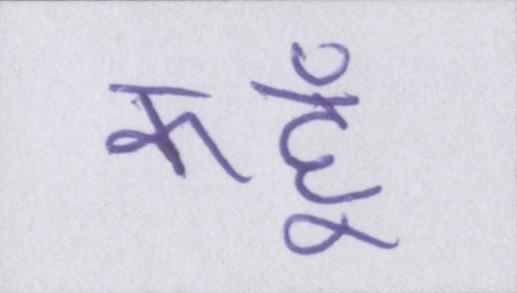 कहूँ